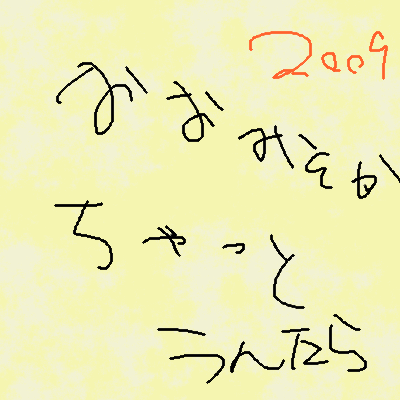 2009
おおみそか
ちゃっと
うんたら